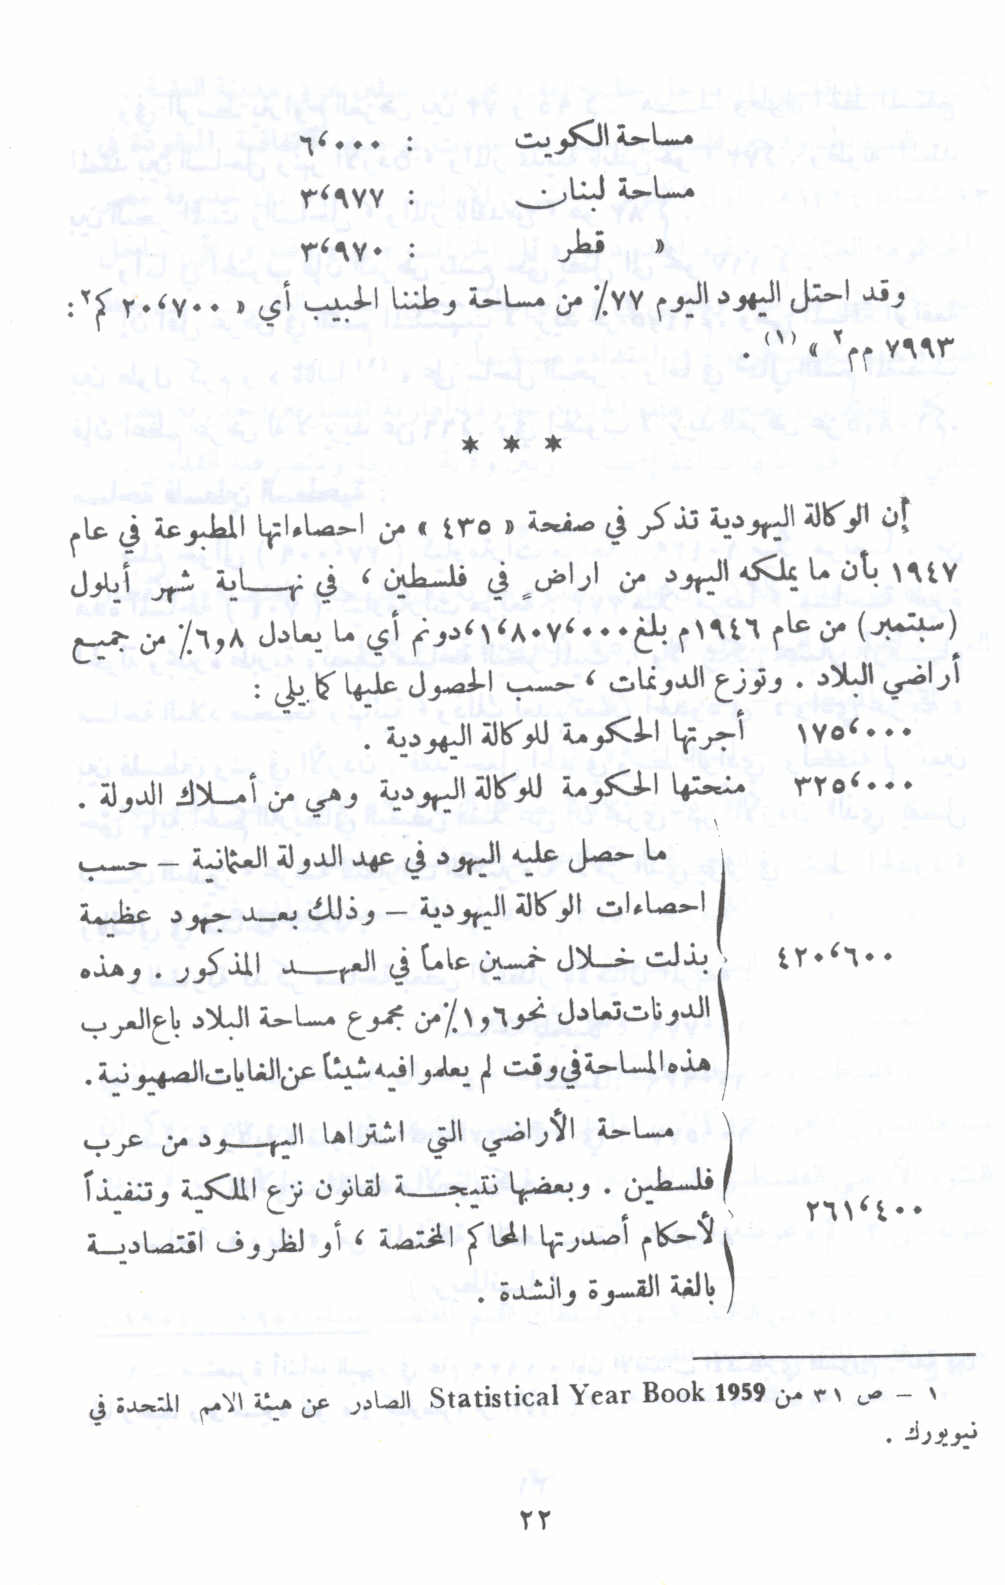 مساحة الكويت : ٦٬٠٠٠
مساحة لبنان : ٣٬٩٧٧
« قطر : ٣٬٩٧٠
وقد احتل اليهود اليوم ٧٧٪ من مساحة وطننا الحبيب أي « ٢٠٬٧٠٠ كم٢ :
٧٩٩٣ مم٢ » (١) .
* * *
إن الوكالة اليهودية تذكر في صفحة « ٤٣٥ » من احصاءاتها المطبوعة في عام
١٩٤٧ بأن ما يملكه اليهود من اراضٍ في فلسطين ، في نهاية شهر أيلول
(سبتمبر) من عام ١٩٤٦م بلغ ١٬٨٠٧٬٠٠٠،دونم أي ما يعادل ٦٫٨٪ من جميع
أراضي البلاد . وتوزع الدونمات ، حسب الحصول عليها كما يلي :
١٧٥٬٠٠٠ أجرتها الحكومة للوكالة اليهودية .
٣٢٥٬٠٠٠ منحتها الحكومة للوكالة اليهودية وهي من أملاك الدولة .
ما حصل عليه اليهود في عهد الدولة العثمانية – حسب
احصاءات الوكالة اليهودية – وذلك بعد جهود عظيمة
٤٢٠٬٦٠٠ بذلت خلال خمسين عاماً في العهد المذكور . وهذه
الدونات تعادل نحو ١٫٦٪ من مجموع مساحة البلاد باع العرب
هذه المساحة في وقت لم يعلموا فيه شيئاً عن الغايات الصهيونية .
مساحة الأراضي التي اشتراها اليهود من عرب
فلسطين . وبعضها نتيجة لقانون نزع الملكية وتنفيذاً
٢٦١٬٤٠٠ لأحكام أصدرتها المحاكم المختصة ، أو لظروف اقتصادية
بالغة القسوة وانشدة .
١ – ص ٣١ من Statistical Year Book 1959 الصادر عن هيئة الامم المتحدة في
نيويورك .
٢٢